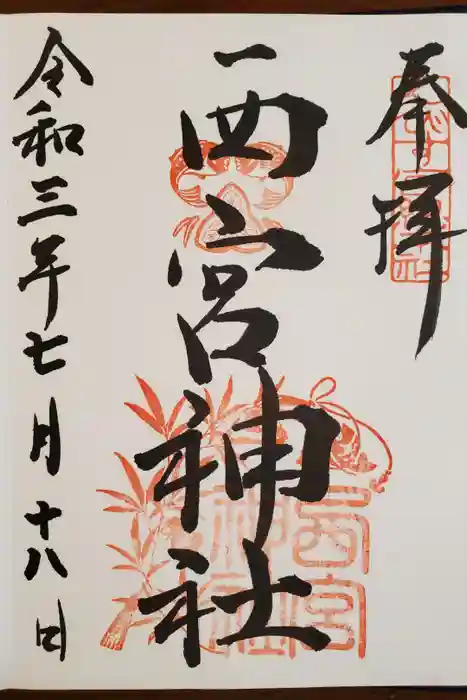 奉拝
西宮神社
令和三年七月十八日
西宮神社